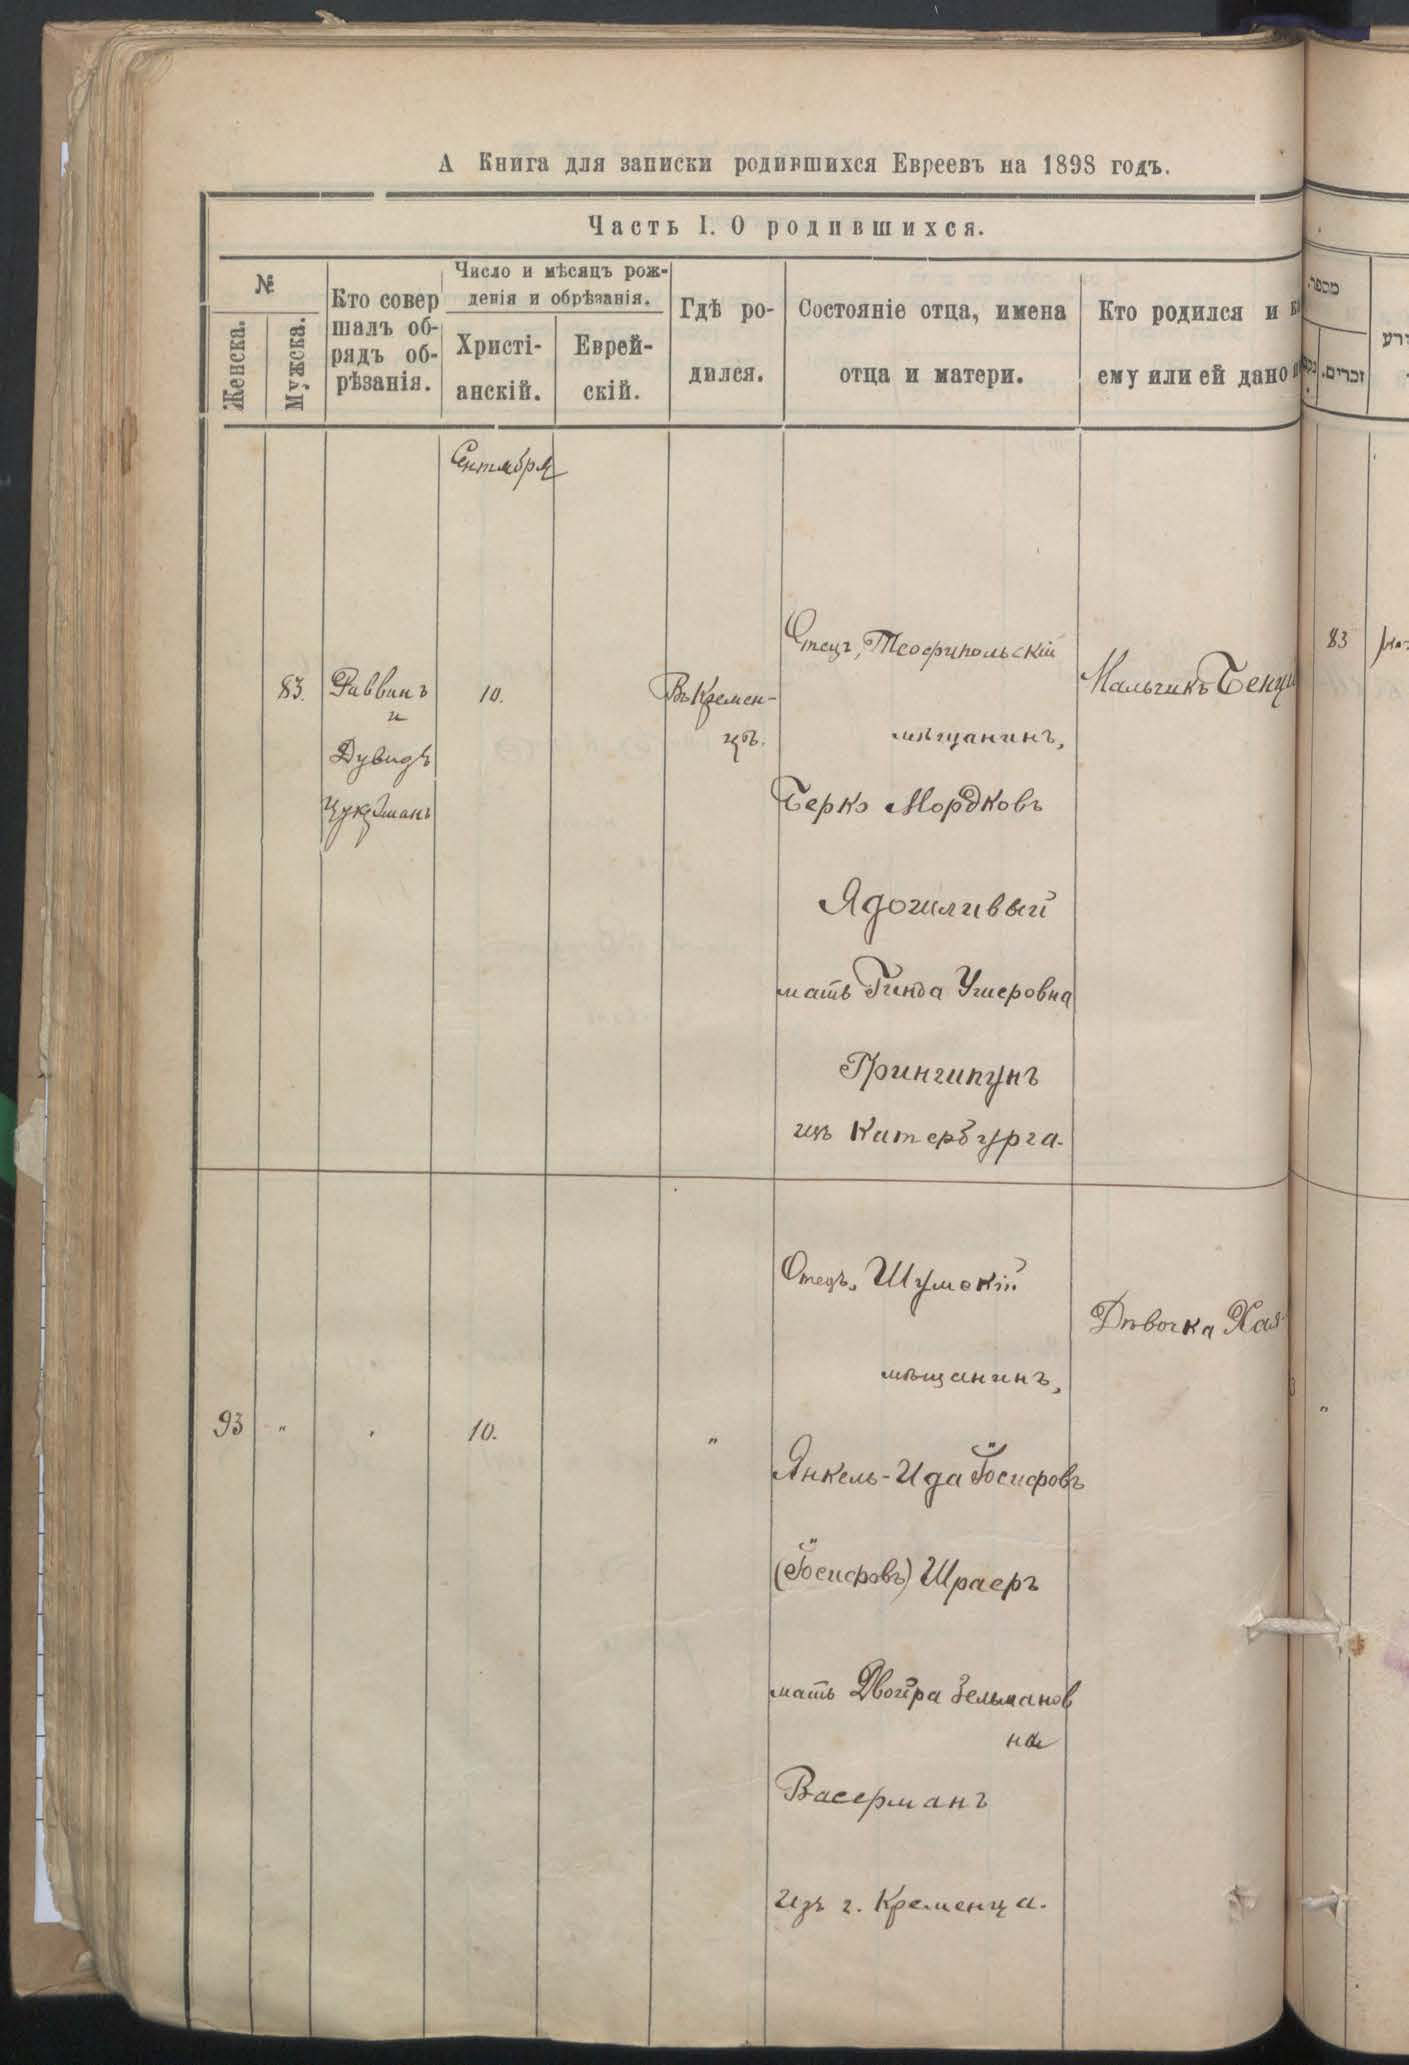 А Книга для записки родившихся Евреевъ на 1898 годъ.
Часть I. О родившихся.
№
Женска.
Мужска.
Кто совер
шалъ об-
рядъ об-
рѣзанія.
Число и мѣсяцъ рож-
денія и обрѣзанія.
Христі-
анскій.
Еврей-
скій.
Гдѣ ро-
дился.
Состояніе отца, имена
отца и матери.
Кто родился и
ему или ей дано
מספר.
זכרים.
Сентября
83.
Раввинъ
и
Дувидъ
Цукерманъ
10.
Въ Кремен-
цѣ.
Отецъ, Теофипольскій
мѣщанинъ,
Берко Мордковъ
Ядошливый
мать Гинда Ушеровна
Грингипунъ
изъ Катербурга.
Мальчикъ
83
93
"
"
10.
"
Отецъ, Шумскій
мѣщанинъ,
Янкель-Ида Іосифовъ
(Іосифовъ) Шраеръ
мать Двойра Зельманов
на
Васерманъ
Изъ г. Кременца.
Дѣвочка Хая
"